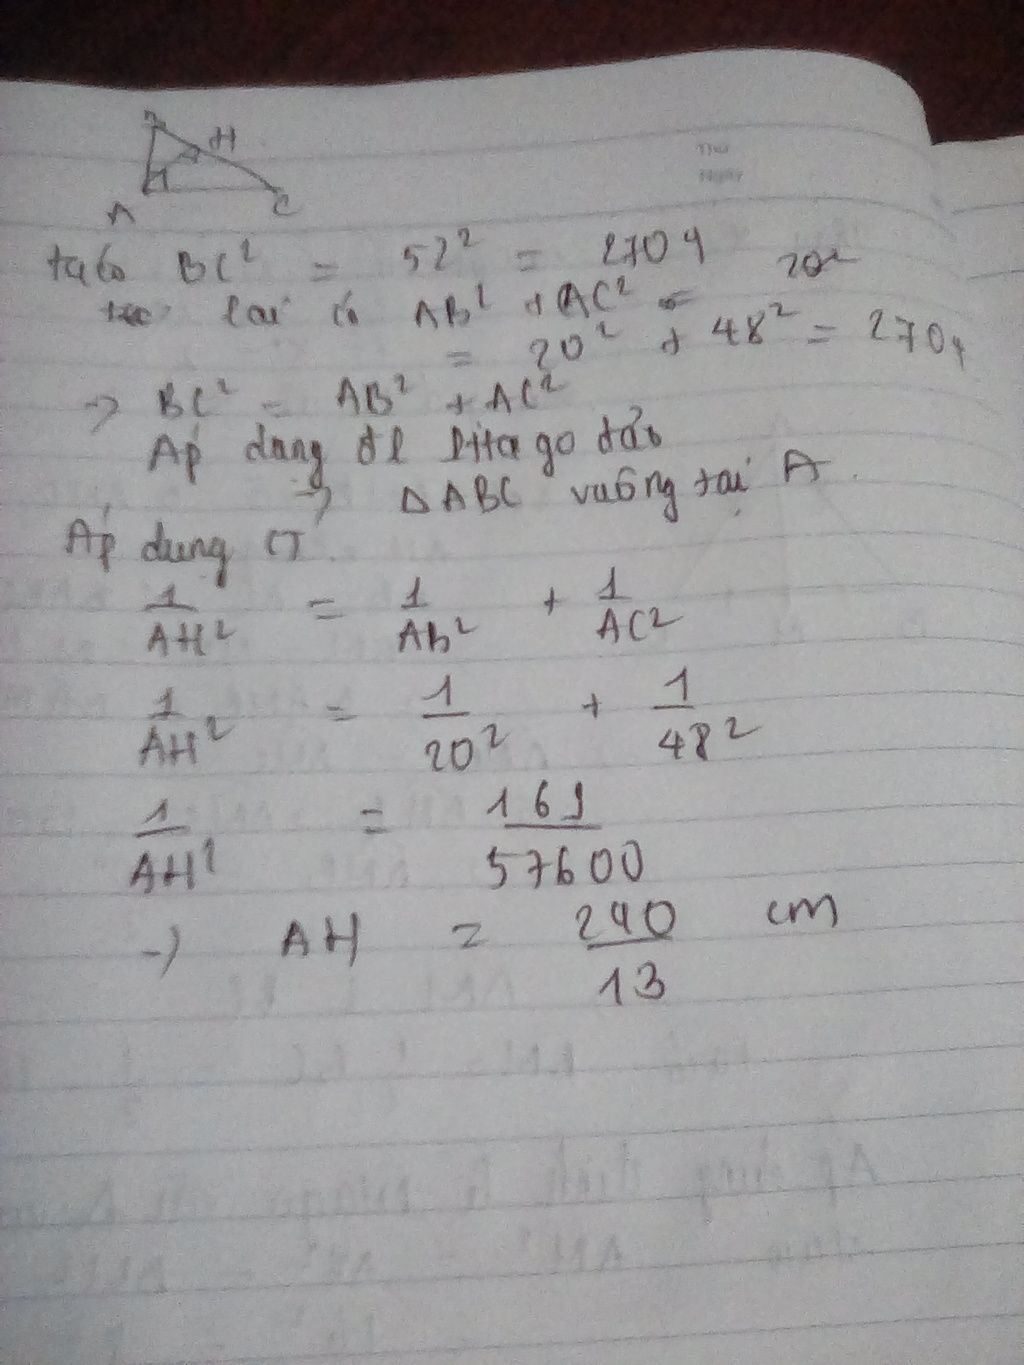 H
A C
Thứ
Ngày
ta có BC² = 52² = 2704
lại có AB² + AC² = 20²
= 20² + 48² = 2704
→ BC² = AB² + AC²
Áp dụng đl Pitago đảo
→ ΔABC vuông tại A.
Áp dụng CT
1/AH² = 1/AB² + 1/AC²
1/AH² = 1/20² + 1/48²
1/AH² = 169/57600
→ AH = 240/13 cm